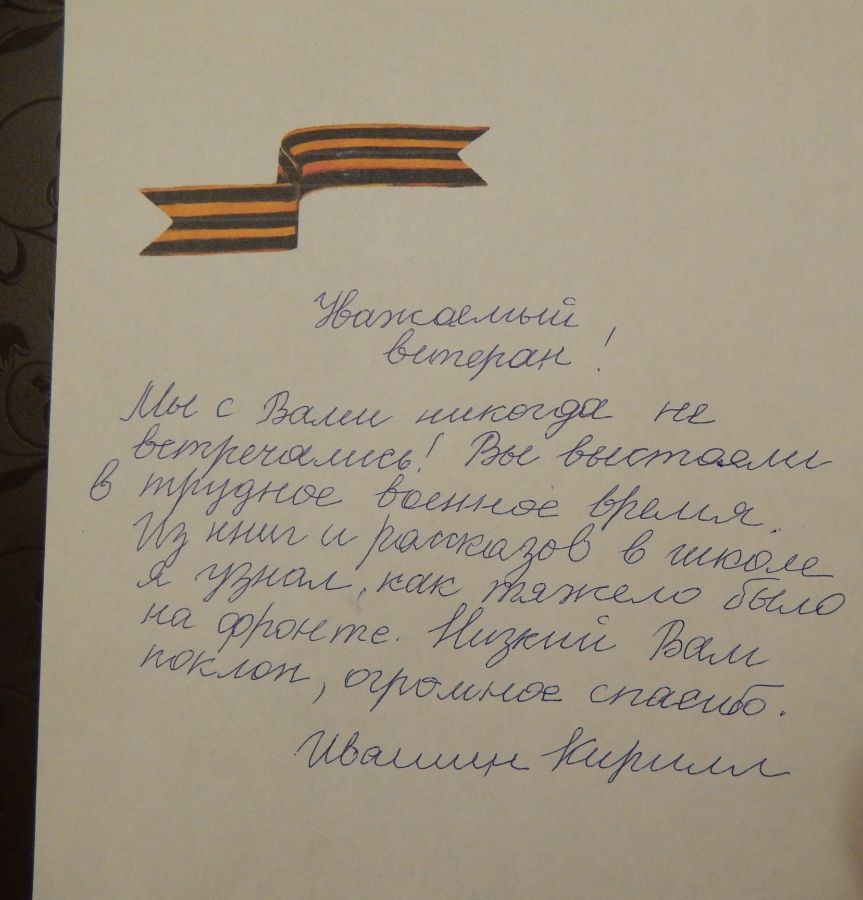 Уважаемый
ветеран!
Мы с Вами никогда не
встречались! Вы выстояли
в трудное военное время.
Из книг и рассказов в школе
я узнал, как тяжело было
на фронте. Низкий Вам
поклон, огромное спасибо.
Ивашин Кирилл